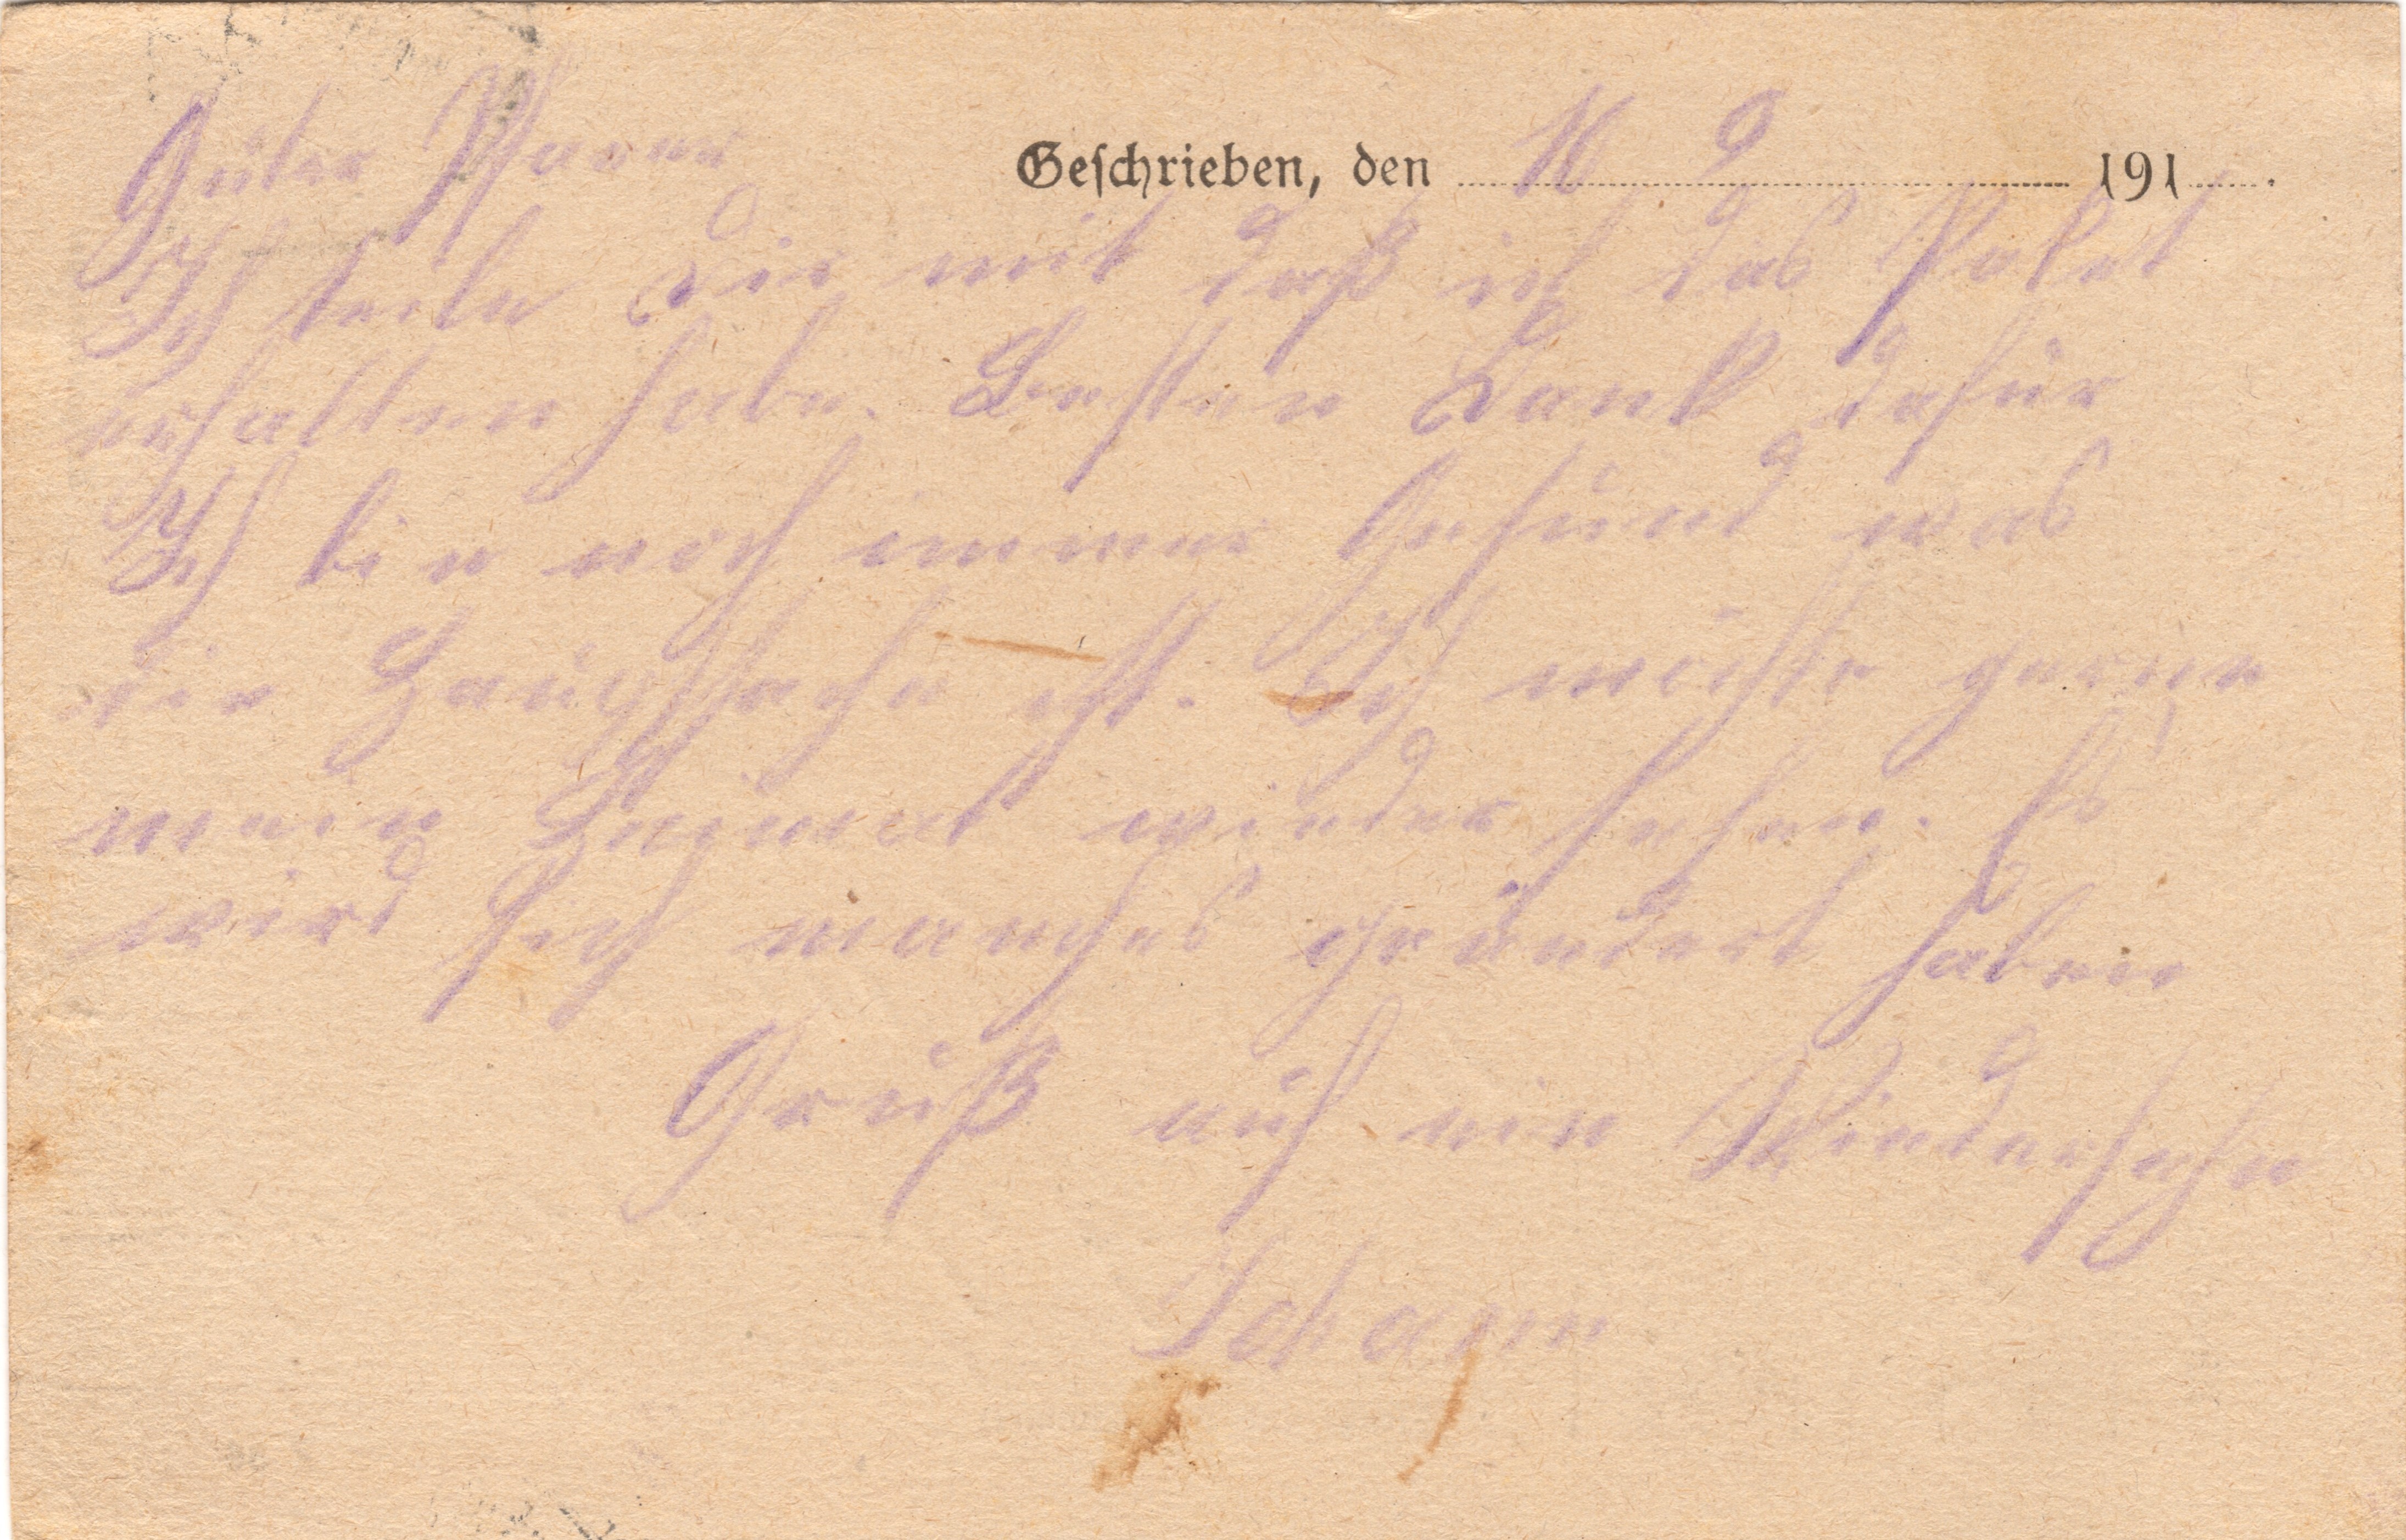 Guter Pfarrer
Geschrieben, den 16 9 191 .
Ich teile Dir mit daß ich das Paket
erhalten habe. Besten Dank dafür
Ich bin noch immer Gesund was
die Haupsache ist. Ich möchte gerne
mein Heimat wieder sehen. Es
wird sich manches geändert haben
Gruß auf ein Wiedersehn
Johann